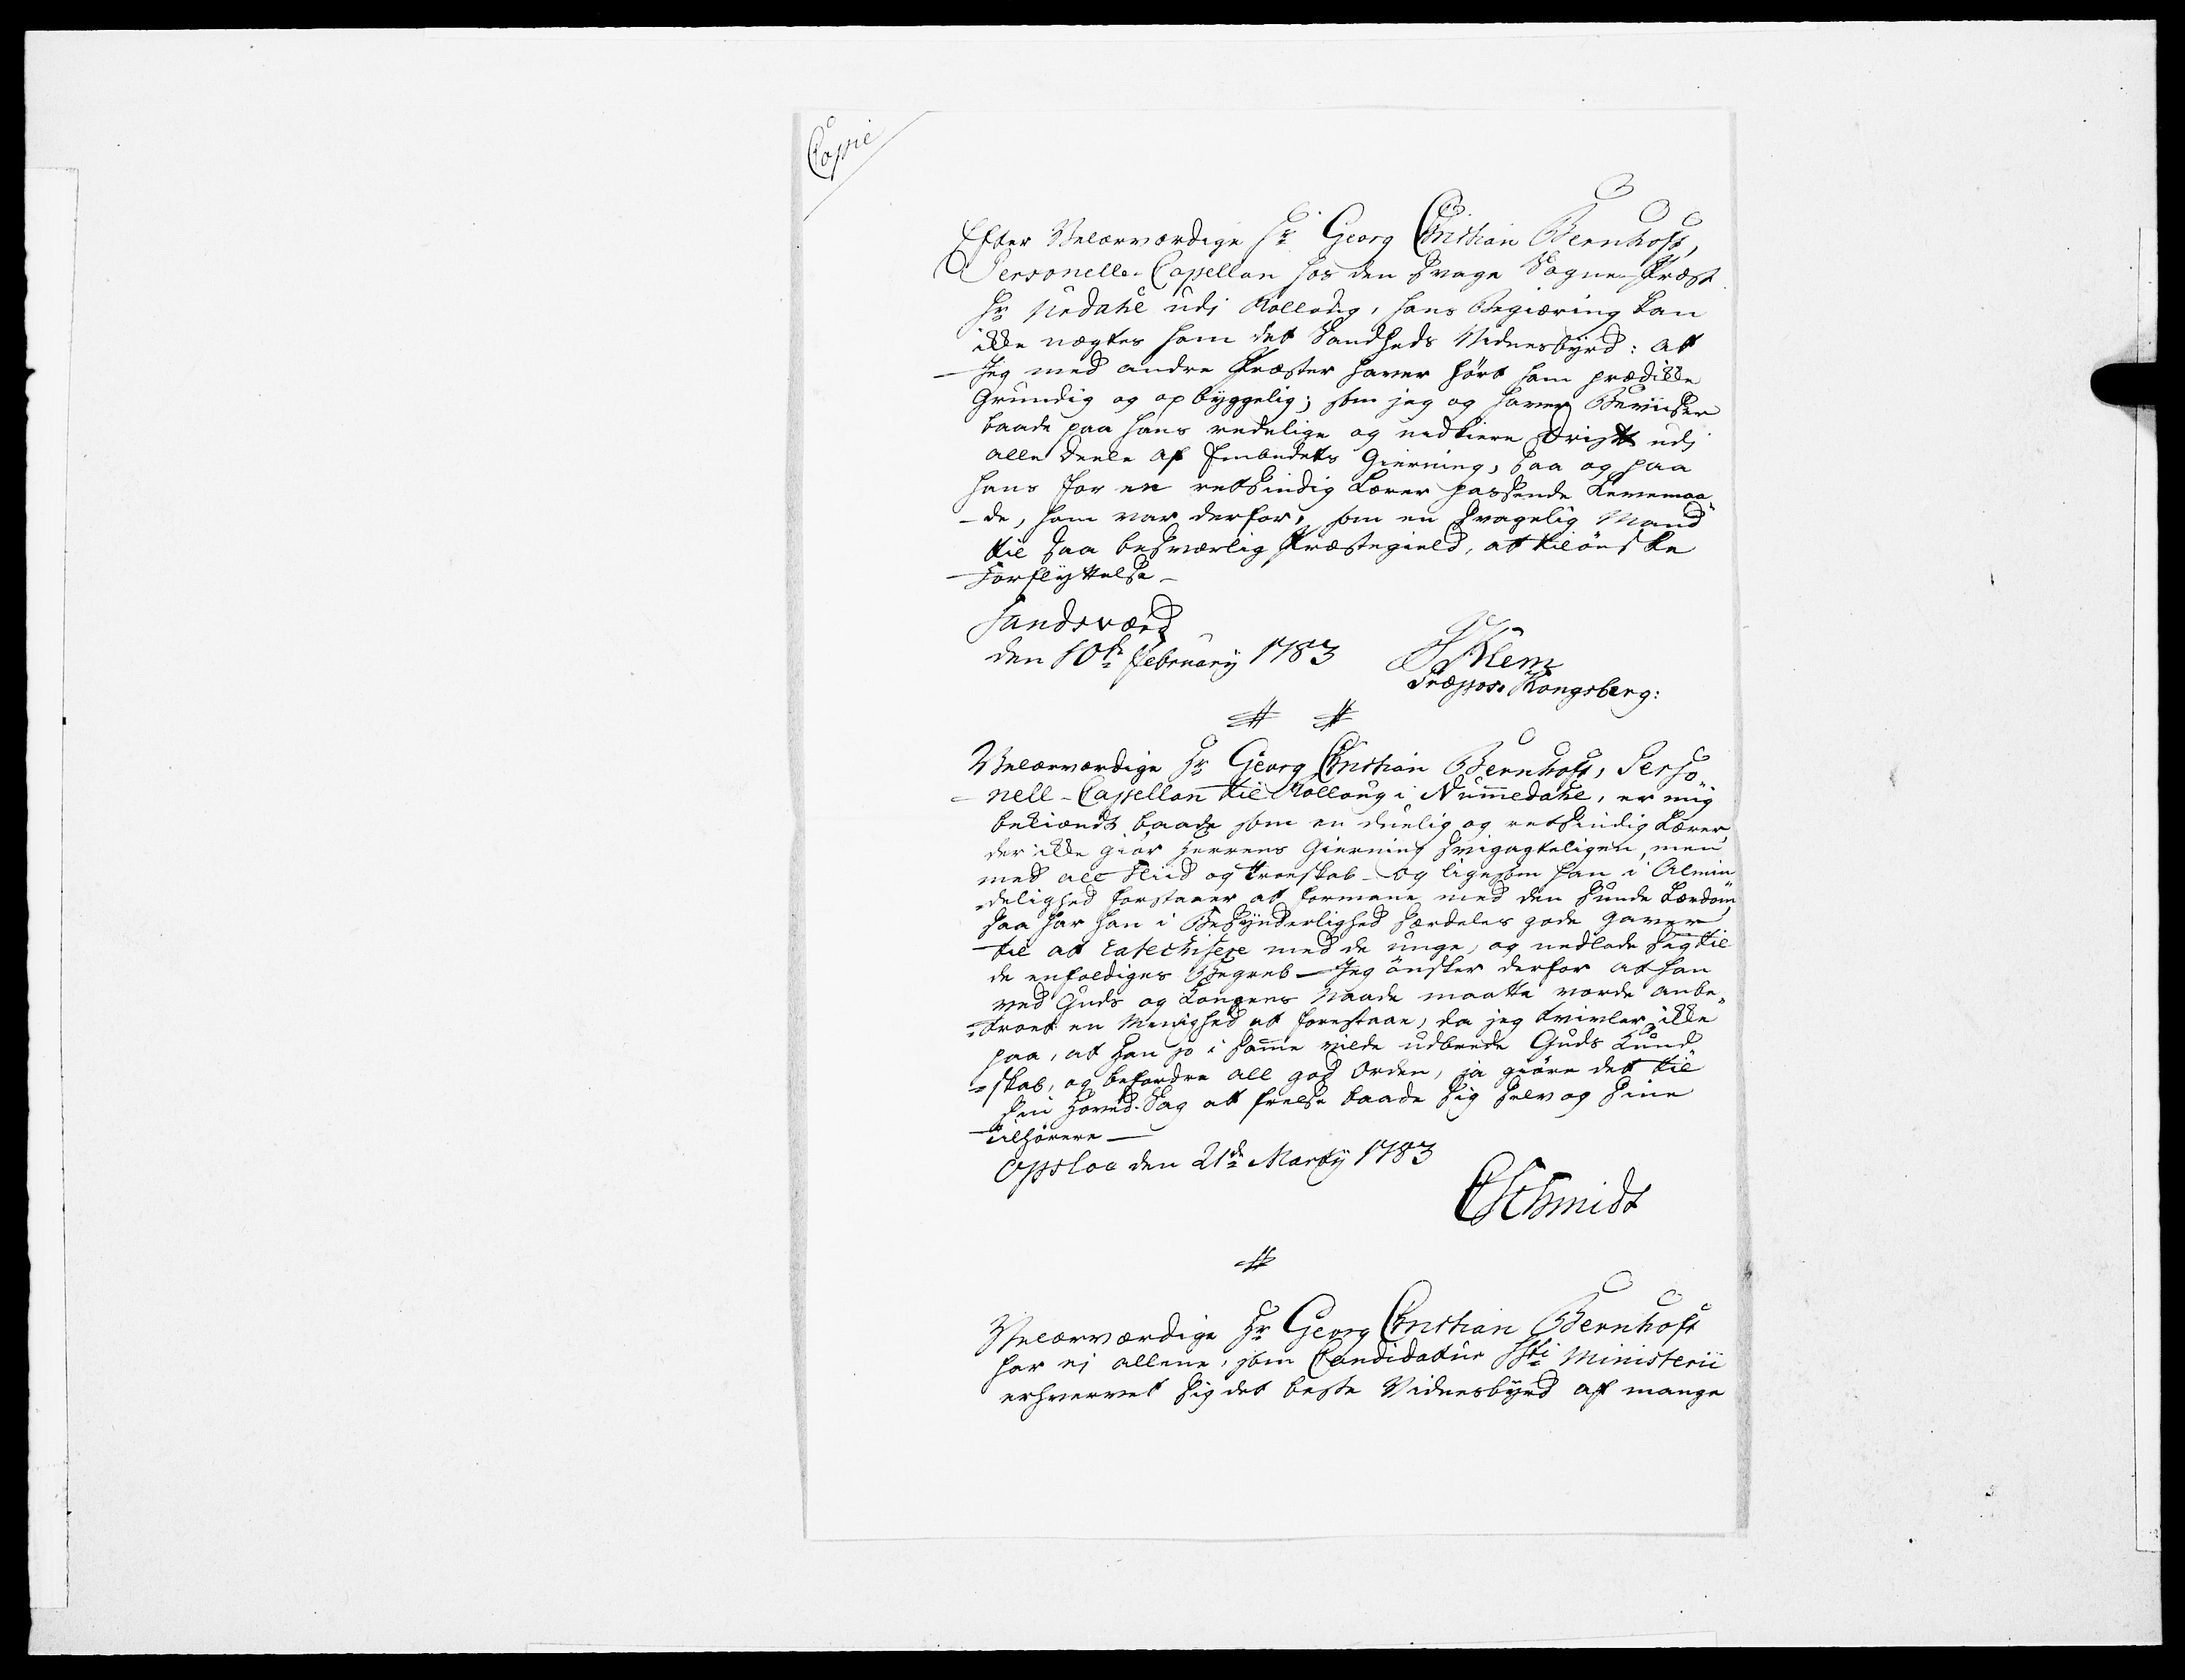 Copie
Efter Velærværdige Hr. Georg Christian Bernhoft,
Personelle-Capellan hos den svage Sogne-Præst
Hr. Nedahl udj Rolloug, hans Begiæring kan
ikke nægtes ham det Sandheds Vidnesbyrd: at
Jeg med andre Præster haver hørt ham prædikke
Grundig og opbyggelig; som jeg og haver Beviiser
baade paa hans redelige og nidkiere Drift udj
alle Deele af Embedets Gierning, saa og paa
hans for en retsindig Lærer passende Levemaa¬
de, ham var derfor, som en svagelig Mand
til saa besværlig Præstegield, at tilønske
Forflyttelse
Sandsværd
den 10de February 1783
Klem
Præpos. Kongsberg:
Velærværdige Hr Georg Christian Bernhoft, Perso¬
nell-Capellan til Rolloug i Nummedahl, er mig
bekiendt baade som en duelig og retsindig Lærer,
der ikke giør Herrens Gierning svigagteligen, men
med all Fliid og Troeskab - og ligesom han i Almin
delighed forstaaer at formane med den sunde Lærdom,
saa har han i Besynderlighed særdeles gode Gaver
til at catechisere med de unge, og nedlade sig til
de enfoldiges Begreb - Jeg ønsker derfor at han
ved Guds og Kongens Naade maatte vorde anbe¬
troet en Menighed at forestaae, da jeg tvivler ikke
paa, at han jo i samme vilde udbrede Guds Kund
skab, og befordre all god Orden, ja giøre det til
sin Hoved-Sag at frelse baade sig selv og sine
Tilhørere
Opsloe den 21de Martÿ 1783
CSchmidt
Velærværdige Hr Georg Christian Bernhoft
har ej allene, som Candidatus Ssti Ministerii
erhvervet sig det beste Vidnesbyrd af mange